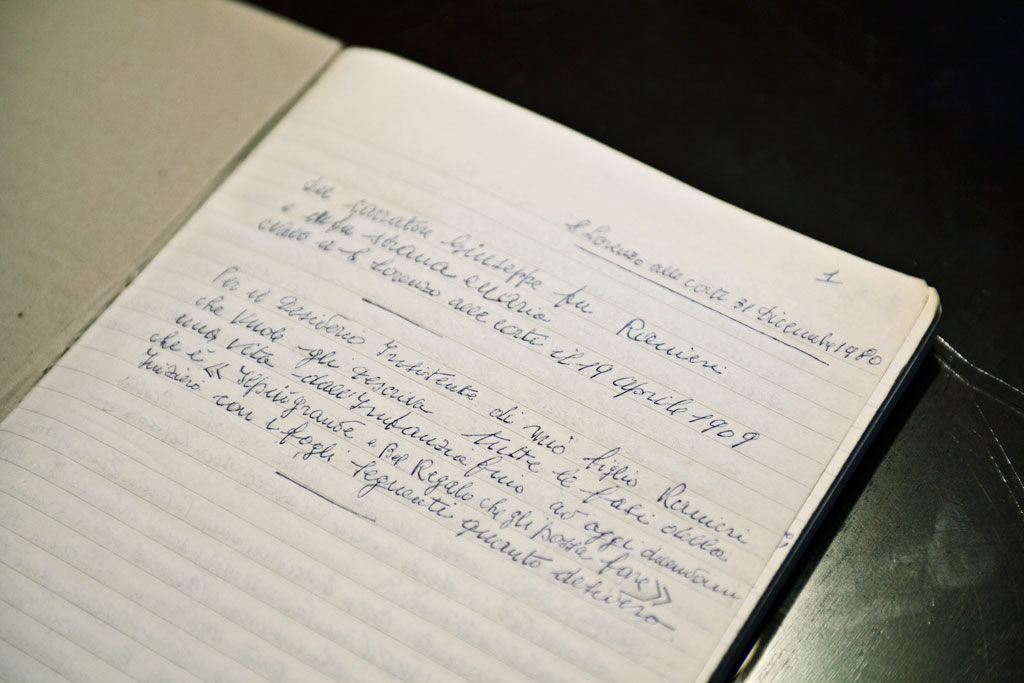 1
S Lorenzo alle corti 31 Dicembre 1980
Giuseppe fu Ranieri
e di fu
nato a S Lorenzo alle corti il 19 Aprile 1909
Per il Desiderio Insistente di mio figlio Ranieri
che vuole gli descriva tutte le fasi della
mia Vita dall'Infanzia fino ad oggi
che è « grande e Bel Regalo che gli possa fare »
Inizio con i fogli seguenti quanto